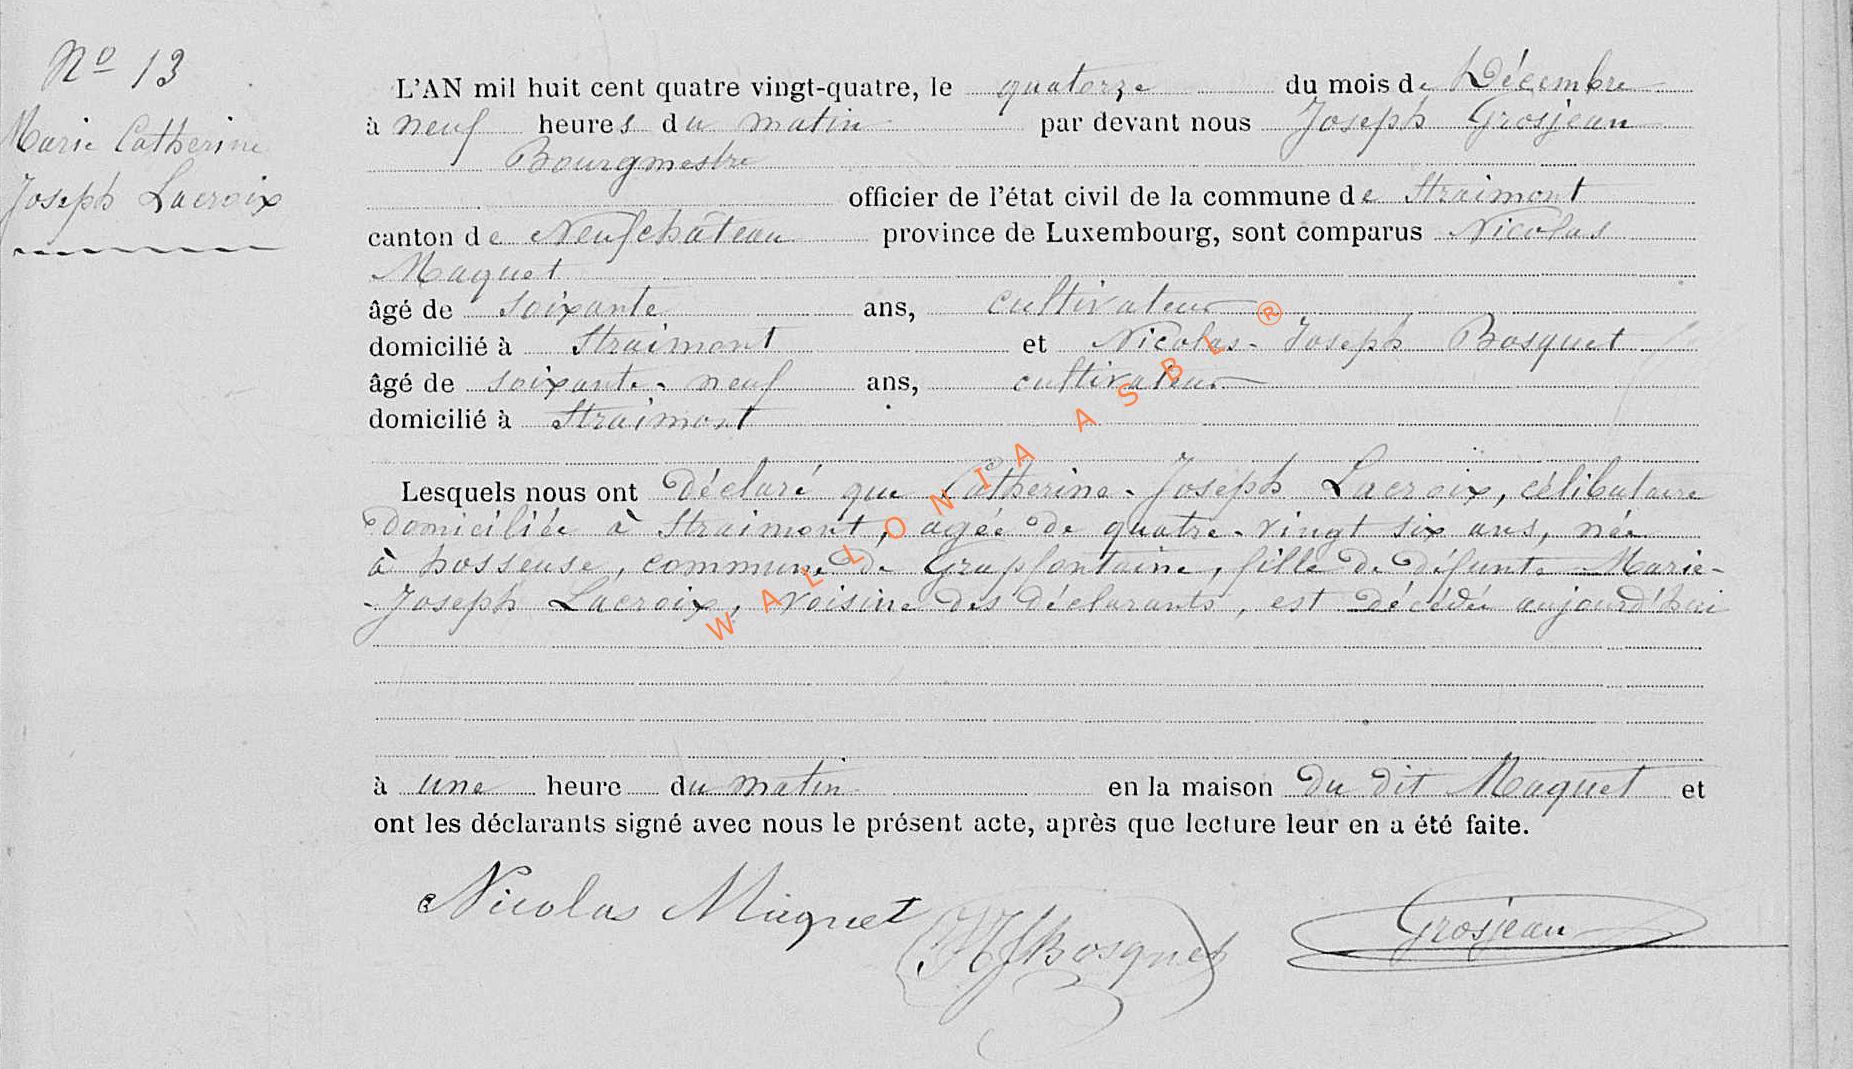 No 13
Marie Catherine
Joseph Lacroix
L'AN mil huit cent quatre vingt-quatre, le quatorze du mois de Décembre
à neuf heures du matin par devant nous Joseph Grosjean
Bourgmestre
officier de l'état civil de la commune de Straimont
canton de Neufchâteau province de Luxembourg, sont comparus Nicolas
Maquet
âgé de soixante ans, cultivateur
domicilié à Straimont et Nicolas-Joseph Bosquet
âgé de soixante-neuf ans, cultivateur
domicilié à Straimont
Lesquels nous ont déclaré que Catherine-Joseph Lacroix, célibataire
domiciliée à Straimont, agée de quatre-vingt six ans, née
à hosseuse, commune de Grapfontaine, fille de défunte Marie-
-Joseph Lacroix, voisine des déclarants, est décédée aujourd'hui
à une heure du matin en la maison du dit Maquet et
ont les déclarants signé avec nous le présent acte, après que lecture leur en a été faite.
Nicolas Maquet NJBosquet Grosjean
WALLONIA ASBL ®